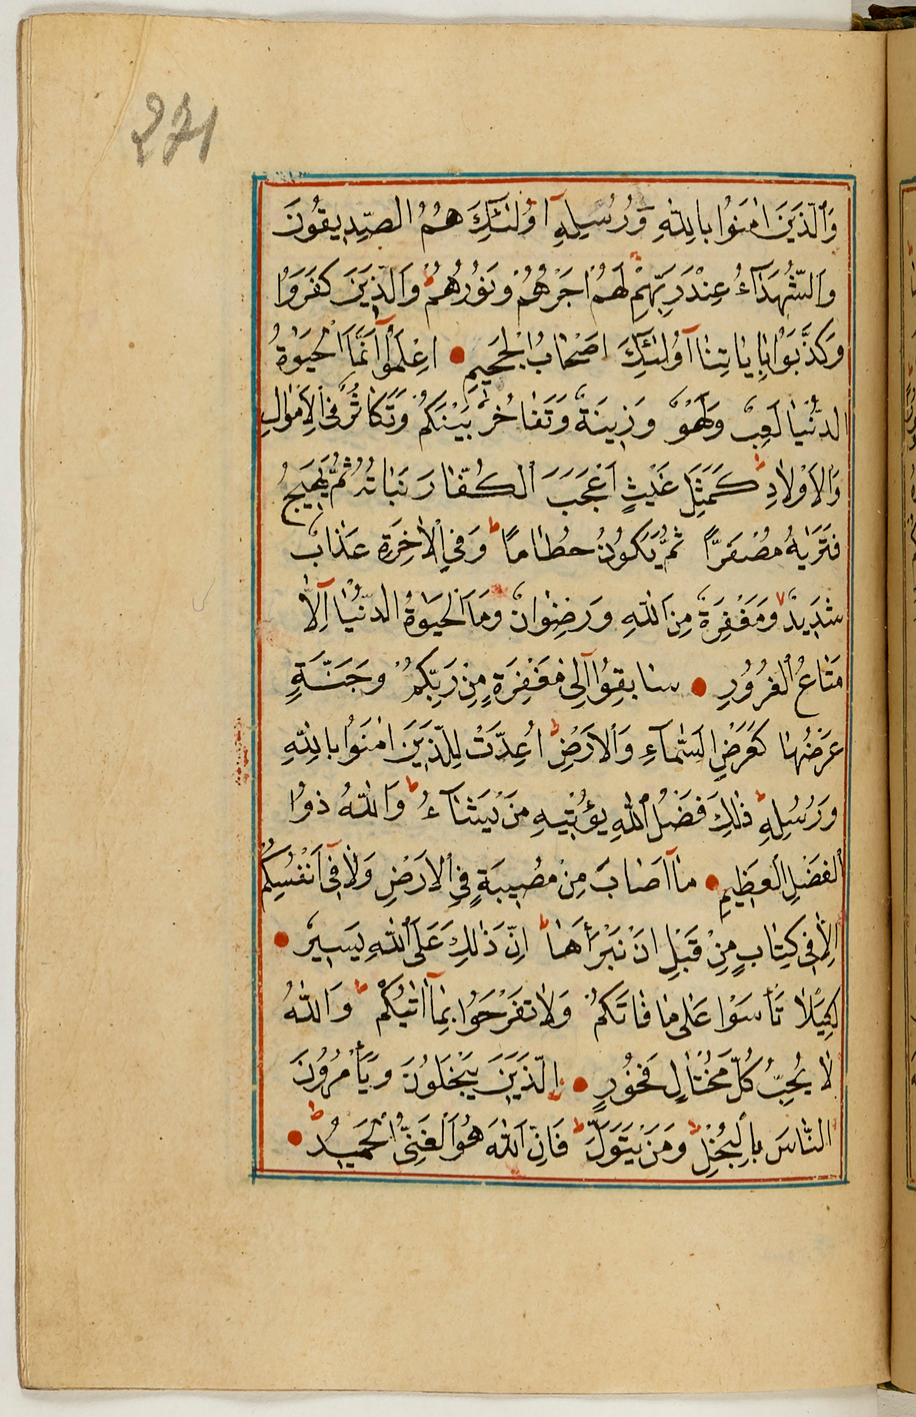 271
وَالَّذِينَ اٰمَنُوا بِاللّٰهِ وَرُسُلِهِ اُولٰئِكَ هُمُ الصِّدِّيقُونَ
وَالشُّهَدَآءُ عِنْدَ رَبِّهِمْ لَهُمْ اَجْرُهُمْ وَنُورُهُمْ ط وَالَّذِينَ كَفَرُوا
وَكَذَّبُوا بِاٰيَاتِنَا اُولٰئِكَ اَصْحَابُ الْجَحِيمِ ● اِعْلَمُوا اَنَّمَا الْحَيٰوةُ
الدُّنْيَا لَعِبٌ وَلَهْوٌ وَزِينَةٌ وَتَفَاخُرٌ بَيْنَكُمْ وَتَكَاثُرٌ فِى الْاَمْوَالِ
وَالْاَوْلَادِ ط كَمَثَلِ غَيْثٍ اَعْجَبَ الْكُفَّارَ نَبَاتُهُ ثُمَّ يَهِيجُ
فَتَرٰيهُ مُصْفَرًّا ثُمَّ يَكُونُ حُطَامًا ط وَفِي الْاٰخِرَةِ عَذَابٌ
شَدِيدٌ وَمَغْفِرَةٌ مِنَ اللّٰهِ وَرِضْوَانٌ ط وَمَا الْحَيٰوةُ الدُّنْيَا اِلَّا
مَتَاعُ الْغُرُورِ ● سَابِقُوا اِلٰى مَغْفِرَةٍ مِنْ رَبِّكُمْ وَجَنَّةٍ
عَرْضُهَا كَعَرْضِ السَّمَآءِ وَالْاَرْضِ ط اُعِدَّتْ لِلَّذِينَ اٰمَنُوا بِاللّٰهِ
وَرُسُلِهِ ط ذٰلِكَ فَضْلُ اللّٰهِ يُؤْتِيهِ مَنْ يَشَآءُ ط وَاللّٰهُ ذُوا
الْفَضْلِ الْعَظِيمِ ● مَا اَصَابَ مِنْ مُصِيبَةٍ فِي الْاَرْضِ وَلَا فِى اَنْفُسِكُمْ
اِلَّا فِى كِتَابٍ مِنْ قَبْلِ اَنْ نَبْرَاَهَا ط اِنَّ ذٰلِكَ عَلَى اللّٰهِ يَسِيرٌ ●
لِكَيْلَا تَأْسَوْا عَلٰى مَا فَاتَكُمْ وَلَا تَفْرَحُوا بِمَا اٰتٰيكُمْ ط وَاللّٰهُ
لَا يُحِبُّ كُلَّ مُخْتَالٍ فَخُورٍ ● الَّذِينَ يَبْخَلُونَ وَيَأْمُرُونَ
النَّاسَ بِالْبُخْلِ ط وَمَنْ يَتَوَلَّ ط فَاِنَّ اللّٰهَ هُوَ الْغَنِىُّ الْحَمِيدُ ط ●